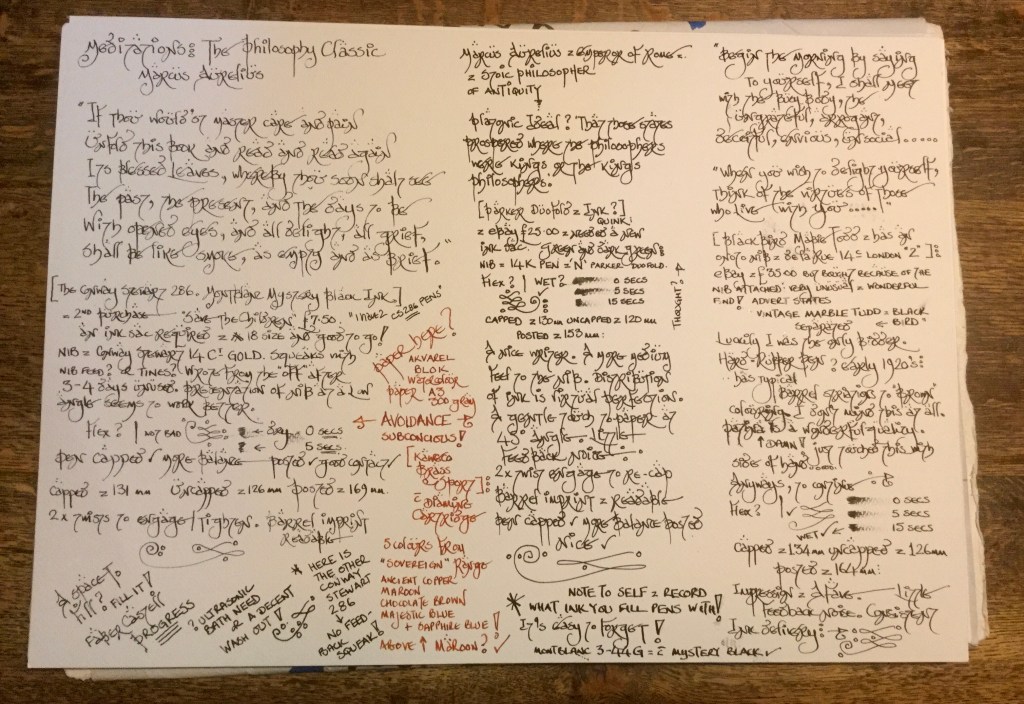 Meditations: The Philosophy Classic
Marcus Aurelius
"If thou would'st master care and pain
Unfold this book and read and read again
Its blessed leaves, whereby thou soon shalt see
The past, the present, and the days to be
With opened eyes, and all delight, all grief,
Shall be like smoke, as empty and as brief."
[The Conway Stewart 286. Montblanc Mystery Black Ink]
= 2nd purchase Save the Children £7.50. "I have 2 CS286 pens"
an ink sac required = A 18 size and good to go!
Nib = Conway Stewart 14 Ct Gold. Squeaks with
nib feed? or tines? Wrote from the off after
3-4 days unused. Presentation of nib at a low
angle seems to work better.
Hex? | not bad dry 0 secs
? 5 secs
Pen capped ✓ more balance posted ✓ good contact ✓
Capped = 131 mm Uncapped = 126 mm Posted = 169 mm.
2x twists to engage / tighten. Barrel imprint
readable
A space to
fill? Fill it!
Faber Castell
Progress
? Ultrasonic
bath need
or a decent
wash out!
* Here is
the other
Conway
Stewart
286
↓
No feed-
back
squeak!
Paper here?
AKVAREL
BLOK
Watercolour
paper A3
300 gram
← AVOIDANCE
SUBCONCIOUS!
[Kaweco
Brass
Sport]:
Diamine
Cartridge
5 colours from
"Sovereign" Range
Ancient Copper
Maroon
Chocolate Brown
Majestic Blue
+ Sapphire Blue!
Above ↑ Maroon? ✓
Marcus Aurelius = Emperor of Rome =
= Stoic Philosopher
of Antiquity
↓
Platonic Ideal? That those states
prospered where the philosophers
were kings or the kings
philosophers.
[Parker Duofold = Ink?]
Quink:
= eBay £25.00 = needed a new
ink sac. Green and dark green:
Nib = 14K Pen = 'N' Parker-Duofold.
Hex? | Wet? 0 secs
5 secs
15 secs
Thought?
Capped = 130mm Uncapped = 120mm
Posted = 153mm:
A nice writer. A more medium
feel to the nib. Distribution
of ink is virtual perfection.
A gentle touch to paper at
45° angle little
feedback noise
2x twist engage to re-cap
Barrel imprint = readable
Pen capped ✓ more balance posted
Nice ✓
* NOTE TO SELF = RECORD
WHAT INK YOU FILL PENS WITH!
It's easy to forget!
Montblanc 3-44G = Mystery Black ✓
"Begin the morning by saying
to yourself, I shall meet
with the busy body, the
ungrateful, arrogant,
deceitful, envious, unsocial.....
"When you wish to delight yourself,
think of the virtues of those
who live with you....."
[Blackbird Mabie Todd = has an
onoto nib = De La Rue 14ct London "2"]:
eBay = £35.00 but bought because of the
nib attached: very unusual = wonderful
find! Advert states
Vintage Marble Tudd = Black
separated ← Bird"
Luckily I was the only bidder.
Hard-Rubber Pen? Early 1920's:
has typical
barrel striations to brown
colouring. I don't mind this at all.
Patina is a wonderful quality.
↑ Damn! Just touched this with
side of hand....
Anyways, to continue
Hex? 0 secs
5 secs
wet ✓ 15 secs
Capped = 134mm Uncapped = 126mm
Posted = 164mm:
Impression = little
feedback noise. Consistent
ink delivery: